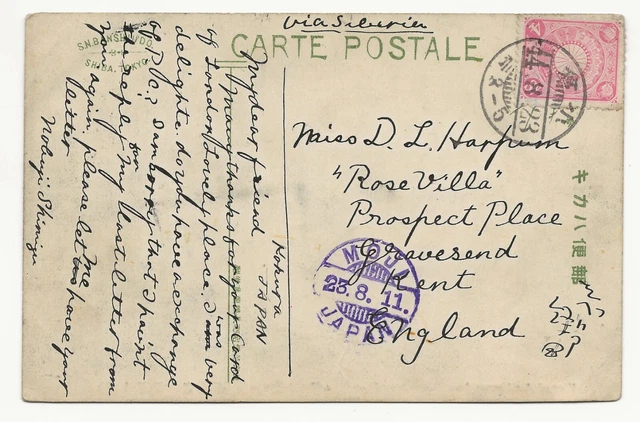 Via Siberia
CARTE POSTALE
S.N.BANSHINDO
SHIBA, TOKYO.
Miss D. L. Harpum
"Rose Villa"
Prospect Place
Gravesend
Kent
England
部便ハカキ
MOJI
23.8.11.
JAPAN
14 8 23
Kokura
JAPAN
My dear friend
Many thanks for your Card
of London Lovely place. I was very
delighte. do you have a exchange
of P.C.? I am sorry that I
the reply for my last letter from
you. again, please let me have your
letter
Nobuji Shimizu